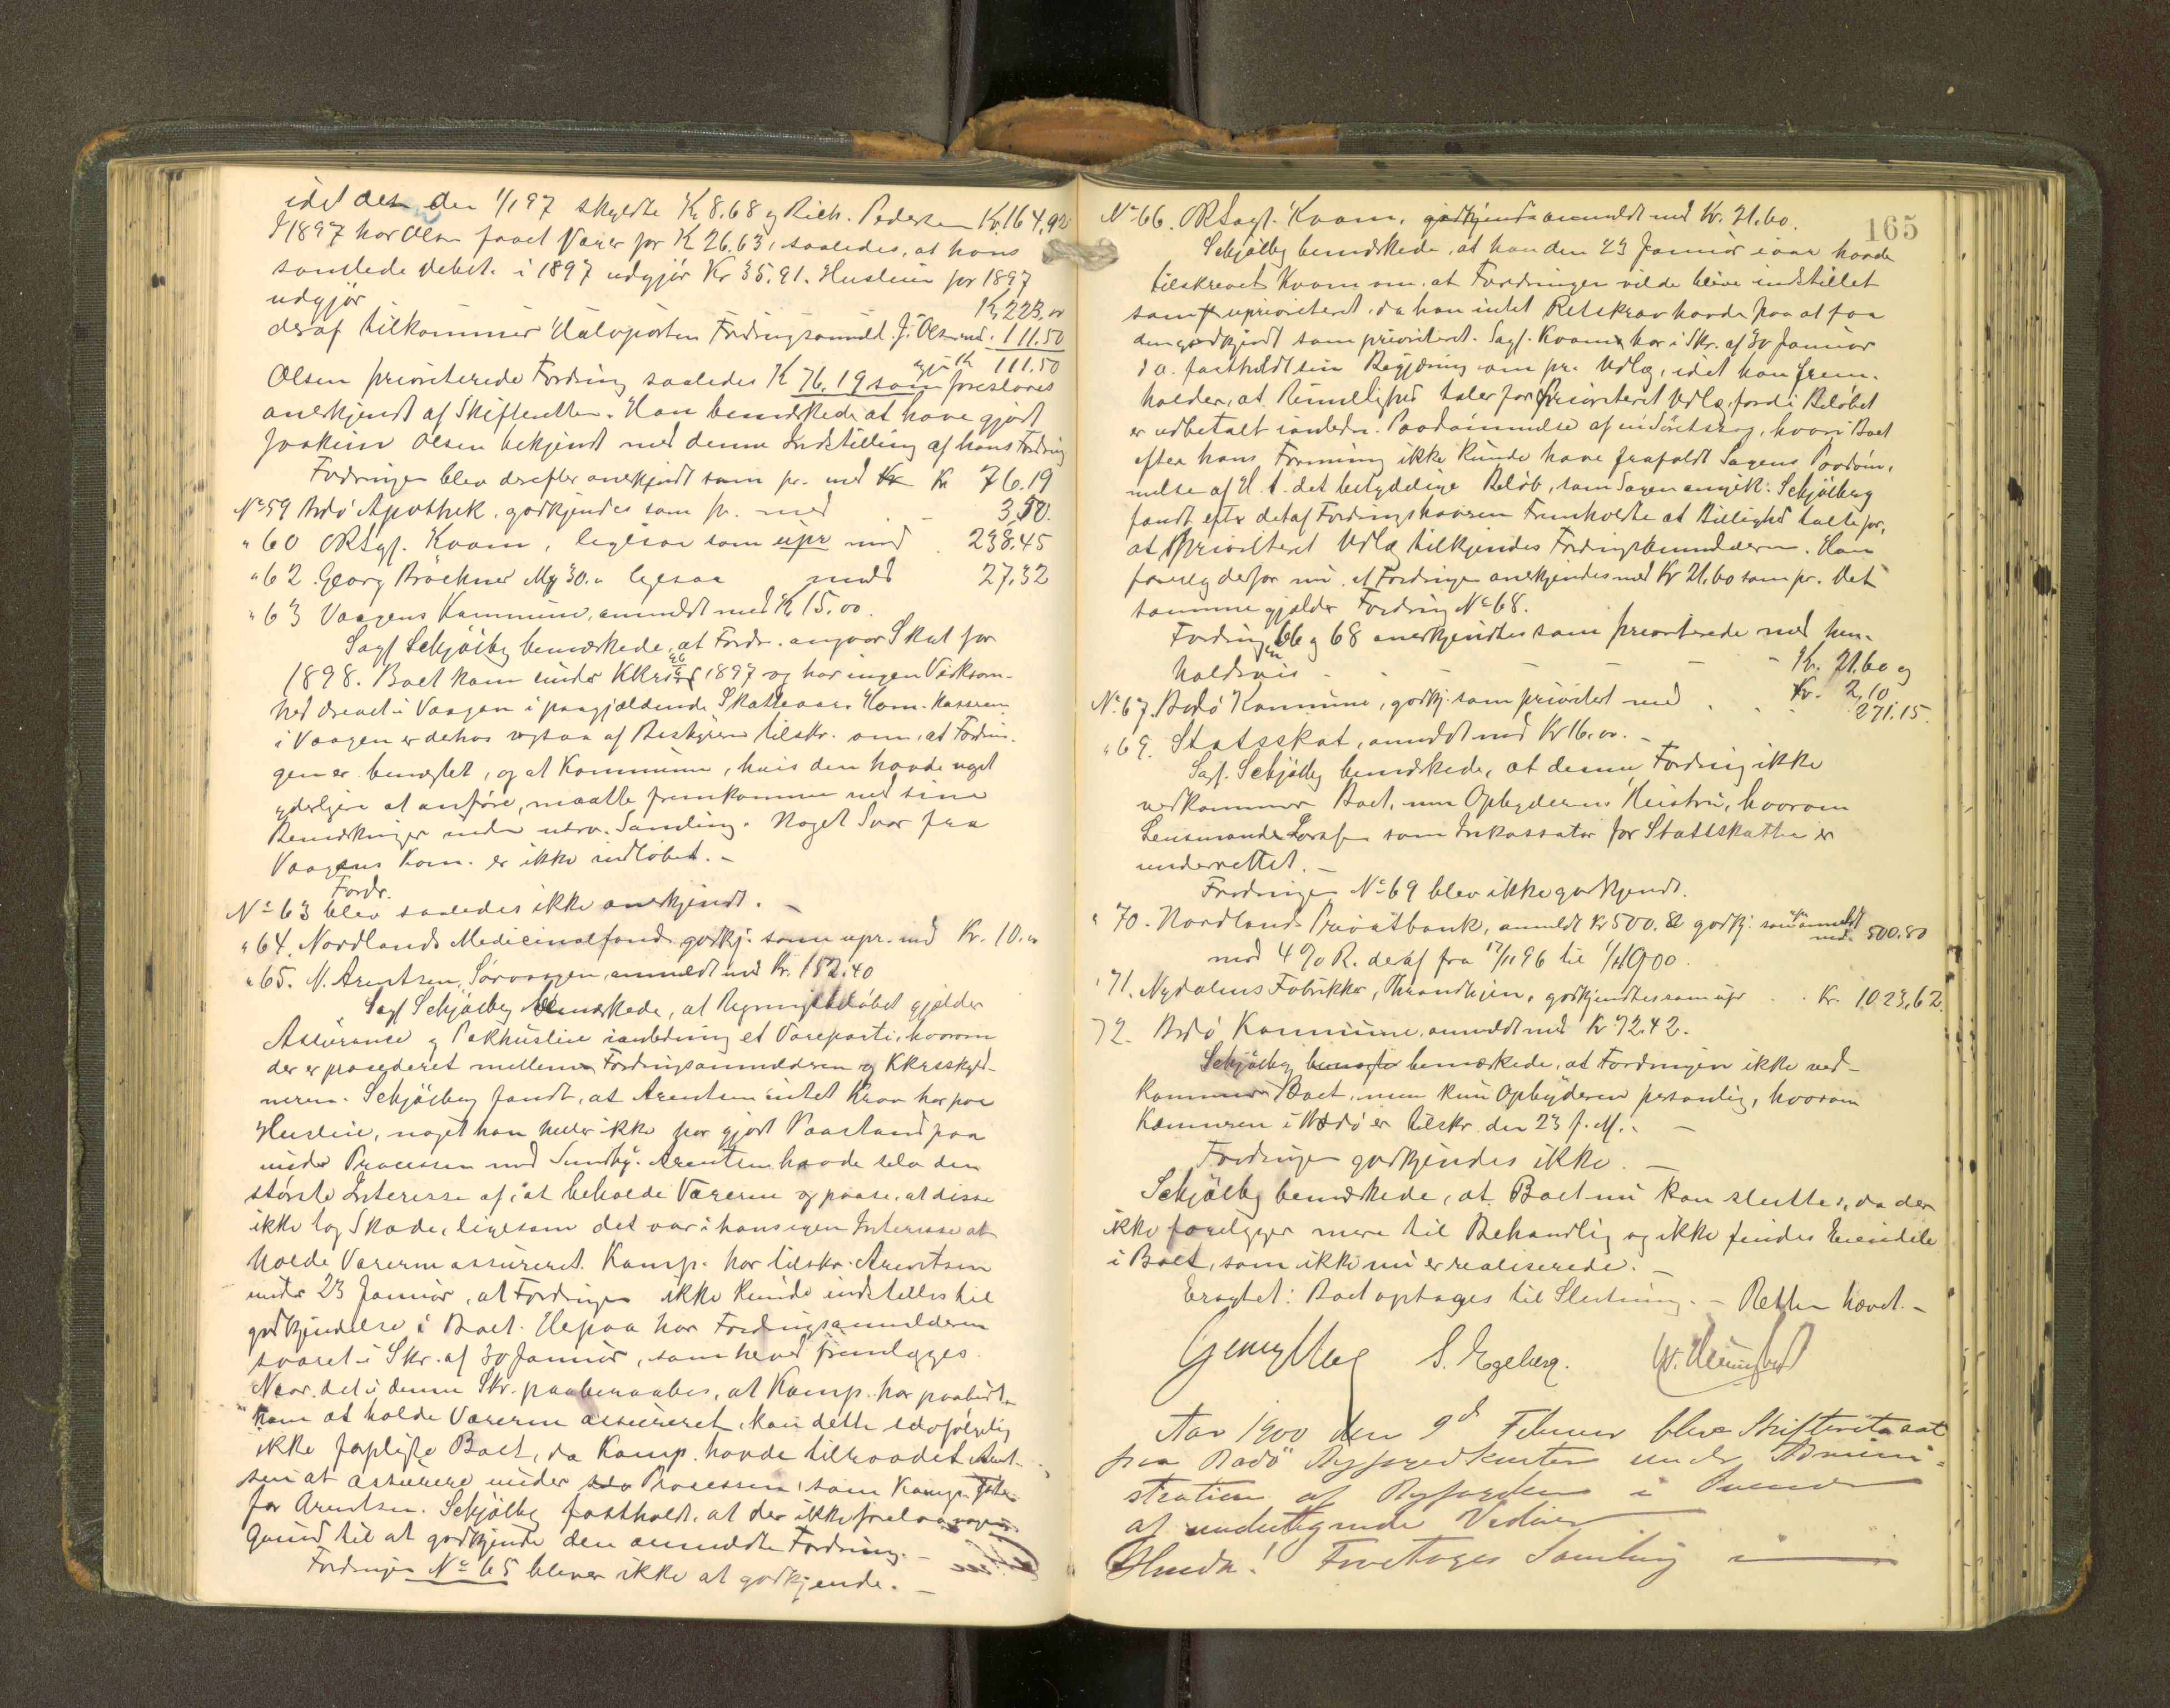 idet den den 1/1 97 skyldte Kr 8.68 og Rich. Pedersen Kr. 164,92
I 1897 har Olsen faaet Varer for Kr 26.63, saaledes, at hans
samlede debet i 1897 udgjør Kr 35.91. Husleie for 1897
udgjør Kr 223,00
deraf tilkommer Halvparten Fordringsanmeld. J. Olsen med. 111.50
111.50
Olsen prioriterede Fordring saaledes Kr 76.19 som foreslaaes
anerkjendt af Skifteretten. Han bemærkede at have gjort
Joakim Olsen bekjendt med denne Indstilling af hans Fordring
Fordringen blev derefter anerkjendt som pr. med Kr 76.19
No 59 Bodø Apothek, godkjendes som pr. med 3,50.
" 60 ORSagf. Kvam, ligesaa som upr med 238,45
" 62 Georg Bröckner ligesaa med 27,32
" 63 Vaagens Kommune, anmeldt med Kr 15,00.
Sagf Schjølberg bemærkede, at Fordr. angaar Skat for
1898. Boet kom under KKrs 1897 og har ingen Virksom-
hed drevet i Vaagen i paagjældende Skatteaar. Kom. kasseren
i Vaagen er derhos ogsaa af Bestyreren tilskr. om, at Fordrin-
gen er benegtet, og at Kommunen, hvis den havde noget
yderligere at anføre, maatte fremkomme med sine
Bemærkninger under nærv. Samling. Noget Svar fra
Vaagens Kom. er ikke indløbet. –
Fordr.
No 63 blev saaledes ikke anerkjendt. –
" 64. Nordlands Medicinalfond godkj. som upr. med Kr. 10.00
" 65. N. Arentsen, Sørvaagen, anmeldt med Kr. 152.40
Sagf Schjølberg bemærkede, at Regningsbeløbet gjælder
Assurance og Pakhusleie i anledning et Vareparti, hvorom
der er procederet mellem Fordringsanmelderen og KKrsskyld-
neren. Schjølberg fandt, at Arentsen intet Krav har paa
Husleie, noget han heller ikke har gjort Paastand paa
under Processen med Sundby. Arentsen havde selv den
største Interesse af, at beholde Varerne og paase, at disse
ikke tog Skade, ligesom det var i hans egen Interesse at
holde Varerne assureret. Komp. har tilskr. Arentsen
under 23 Januar, at Fordringen ikke kunde indstilles til
godkjendelse i Boet. Herpaa har Fordringsanmelderen
svaret i Skr. af 30 Januar, som herved fremlægges.
Naar det i denne Skr. paaberaabes, at Komp. har paabudt
ham at holde Varerne assureret, kan dette selvfølgelig
ikke forpligte Boet, da Komp. havde tilraadet Arent-
sen at assurere under Processen, som Komp. førte
for Arentsen. Schjølberg fastholdt, at der ikke forelaa nogen
Grund til at godkjende den anmeldte Fordring. –
Fordringen No 65 bliver ikke at godkjende. –
165
No 66. ORSagf. Kvam, anmeldt med Kr. 21.60.
Schjølberg bemærkede, at han den 23 Januar i aar havde
tilskrevet Kvam om, at Fordringen vilde blive indstillet
som uprioriteret, da han intet Retskrav havde paa at faa
den godkjendt som prioriteret. Sagf. Kvam har i Skr. af 30 Januar
d a. fastholdt sin Begjæring om pr. Udlæg, idet han frem-
holder, at Rimelighed taler for prioriteret Udlæg, fordi Beløbet
er udbetalt i anledn. Paadømmelse af en Søretssag, hvori Boet
efter hans Formening ikke kunde have frafaldt Sagens Paadøm-
melse af H. t. det betydelige Beløb, som Sagen angik. Schjølberg
fandt efter det af Fordringshaveren Fremholdte at Billighed talte for,
at prioriteret Udlæg tilkjendes Fordringsanmelderen. Han
foreslog derfor nu at Fordringen anerkjendes med Kr 21.60 som pr. Det
samme gjælder Fordring No 68.
Fordringen 66 og 68 anerkjendtes som prioriterede med hen-
holdsvis – – – – Kr. 21.60 og
Kr. 2,10
No 67. Bodø Kommune, godkj. som prioritet med 271.15.
" 69. Statsskat, anmeldt med Kr 16.00. –
Sagf. Schjølberg bemærkede, at denne Fordring ikke
vedkommer Boet, men Opbyderens Hustru, hvorom
Lensmanden som Inkassator for Statsskatten er
underrettet. –
Fordringen No 69 blev ikke godkjendt.
" 70. Nordlands Privatbank, anmeldt Kr 500.80 godkj. som anmeldt med 500.80
med 4 % R. deraf fra 17/11 96 til 1/1 1900.
" 71. Nydalens Fabrikker, Throndhjem, godkjendtes som upr . . Kr. 1023,62
72. Bodø Kommune, anmeldt med Kr 72.42.
Schjølberg bemærkede, at Fordringen ikke ved-
kommer Boet, men kun Opbyderen personlig, hvorom
Kæmneren i Bodø er tilskr. den 23 f. M. –
Fordringen godkjendes ikke. –
Schjølberg bemærkede, at Boet nu kan sluttes, da der
ikke foreligger mere til Behandling og ikke findes Eiendele
i Boet, som ikke nu er realiserede. –
Eragtet: Boet optages til Slutning. – Retten hævet. –
S. Egeberg.
Aar 1900 den 9d Februar blev Skifteret sat
paa Bodø Byfogedkontor under Admini-
stration af Byfogden i Overvær
af undertegnede Vidner
Hvorda! Foretoges Samling i